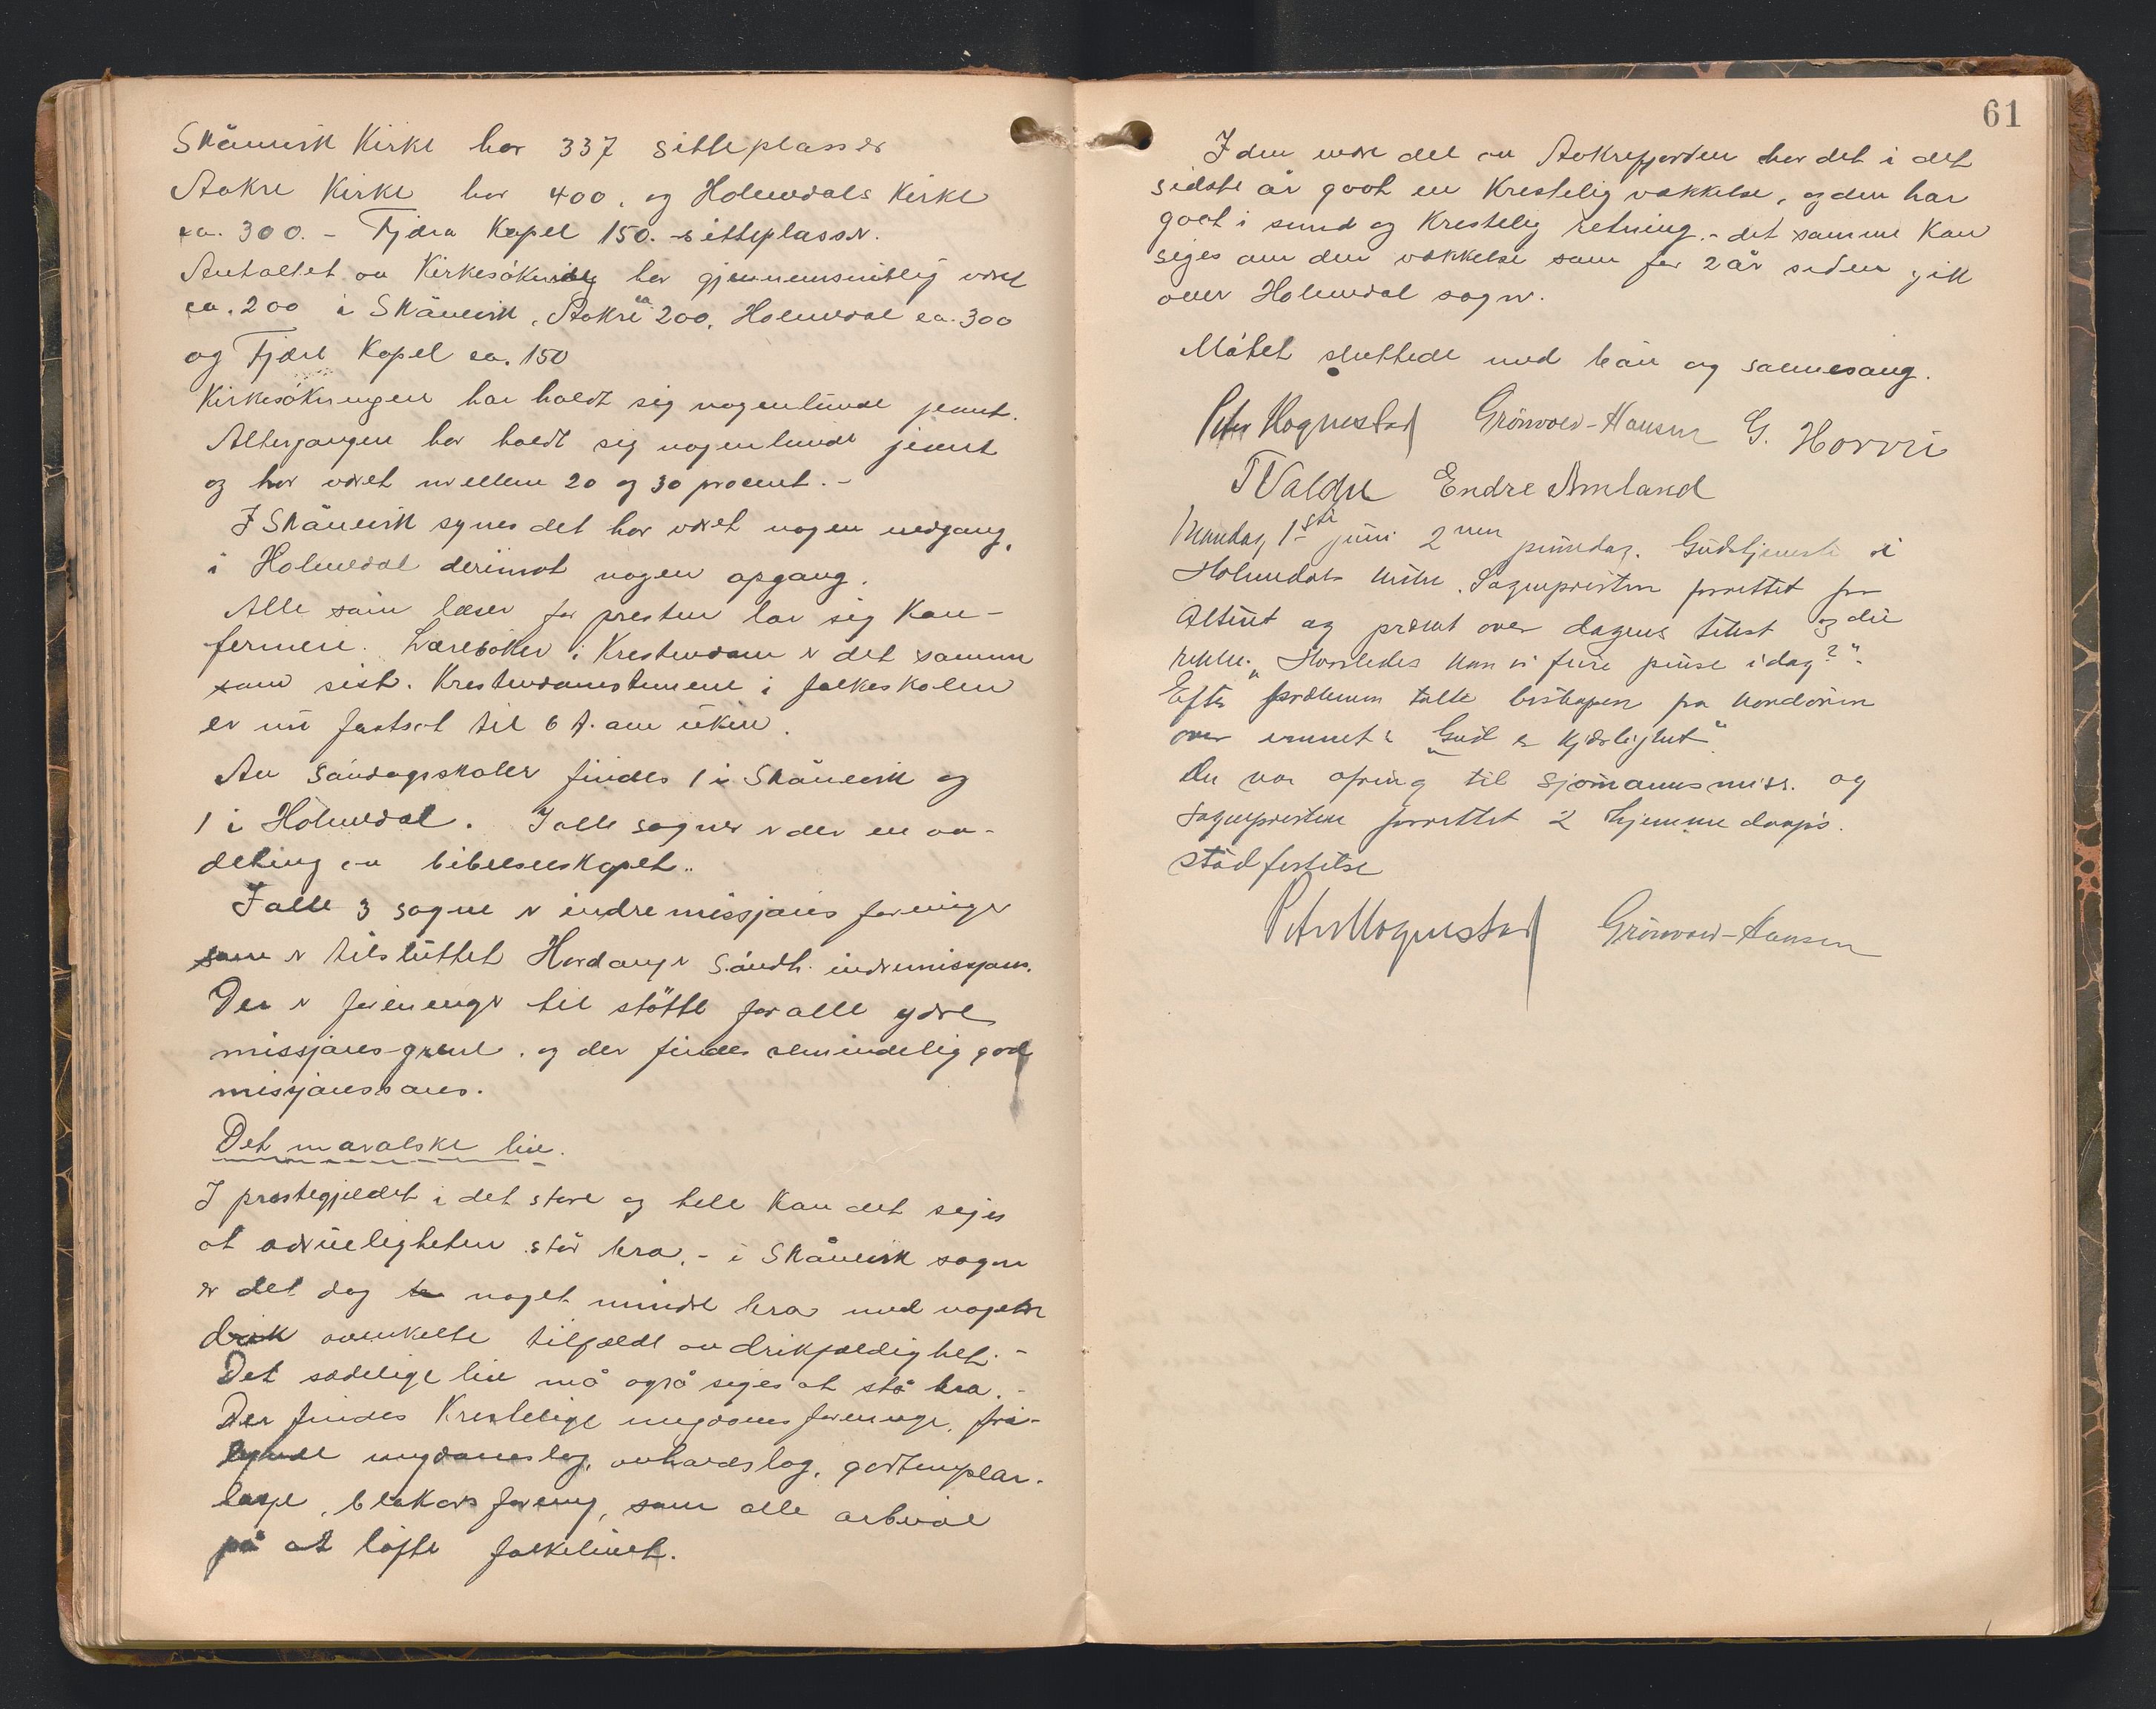 Skånevik Kirke har 337 sitteplasser
Aakre Kirke har 400, og Holmedals Kirke
ca. 300. - Fjæra Kapel 150. sitteplasser.
Antallet av Kirkesökende har gjennemsnitlig været
ca. 200 i Skånevik, Aakre ca 200, Holmedal ca. 300
og Fjære Kapel ca. 150
Kirkesökningen har holdt sig nogenlunde jevnt.
Altergangen har holdt sig nogenlunde jevnt
og har været mellem 20 og 30 procent. -
I Skånevik synes det har været nogen nedgang,
i Holmedal derimot nogen opgang.
Alle som læser for presten lar sig kon-
fermere. Læreböker i Kristendom er det samme
som sist. Kristendomstimene i folkeskolen
er nu fastsat til 6 t. om uken.
Av söndagsskoler findes 1 i Skånevik og
1 i Holmedal. I alle sogner er der en av-
deling av bibelselskapet.
I alle 3 sogne er indremissjons foreninger
som er tilsluttet Hordang. og Söndh. indremissjon.
Der er foreninger til stötte for alle ydre
missjons-grene, og der findes almindelig god
missjonssans.
Det moralske liv.
I prestegjeldet i det store og hele kan det sejes
at ædrueligheten står bra, - i Skånevik sogn
er det dog noget mindre bra med nogen
enkelte tilfælde av drikfældighet. -
Det sædelige liv må også sejes at stå bra. -
Der findes Kristelige ungdoms foreninger, fri-
lynde ungdomslag, avholdslag, godtemplar-
losje, blåkors forening, som alle arbeide
på at löfte folkelivet.
61
I den indre del av Aakrefjorden har det i det
sidste år gåot en Kristelig vækkelse, og den har
gåot i sund og Kristelig retning. - det samme kan
siges om den vækkelse som for 2 år siden gik
over Holmedal sogn.
Mötet sluttede med bön og salmesang.
Peter Hognestad Grönvold-Hansen G. Horvei
T Valdre Endre Amland
Mandag 1ste juni 2nen pinsedag. Gudstjeneste i
Holmedals kirke. Sogneprösten forrettet for
Alteret og prækte over dagens tekst 2den
rekke. "Hvorledes kan vi feire pinse idag?".
Efter prækenen talte biskopen fra kordören
over emnet: "Gud er kjærlighet".
Der var ofring til sjömannsmiss. og
Sogneprösten forrettet 2 hjemme daaps-
stadfestelse
Peter Hognestad Grönvold-Hansen